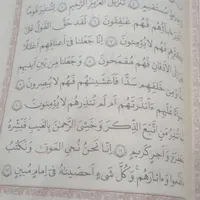 تَنزِيلَ ٱلْعَزِيزِ ٱلرَّحِيمِ
فَهُمْ غَٰفِلُونَ لَقَدْ حَقَّ ٱلْقَوْلُ
فَهُمْ لَا يُؤْمِنُونَ إِنَّا جَعَلْنَا فِىٓ أَعْنَٰقِهِمْ أَغْلَٰلًا
ٱلْأَذْقَانِ فَهُم مُّقْمَحُونَ وَجَعَلْنَا مِنۢ بَيْنِ أَيْدِ
خَلْفِهِمْ سَدًّا فَأَغْشَيْنَٰهُمْ فَهُمْ لَا يُبْصِرُونَ
عَلَيْهِمْ ءَأَنذَرْتَهُمْ أَمْ لَمْ تُنذِرْهُمْ لَا يُؤْمِنُونَ
تُنذِرُ مَنِ ٱتَّبَعَ ٱلذِّكْرَ وَخَشِىَ ٱلرَّحْمَٰنَ بِٱلْغَيْبِ فَبَشِّرْهُ
وَأَجْرٍ كَرِيمٍ إِنَّا نَحْنُ نُحْىِ ٱلْمَوْتَىٰ وَنَكْتُبُ
وَءَاثَٰرَهُمْ وَكُلَّ شَىْءٍ أَحْصَيْنَٰهُ فِىٓ إِمَامٍ مُّبِينٍ